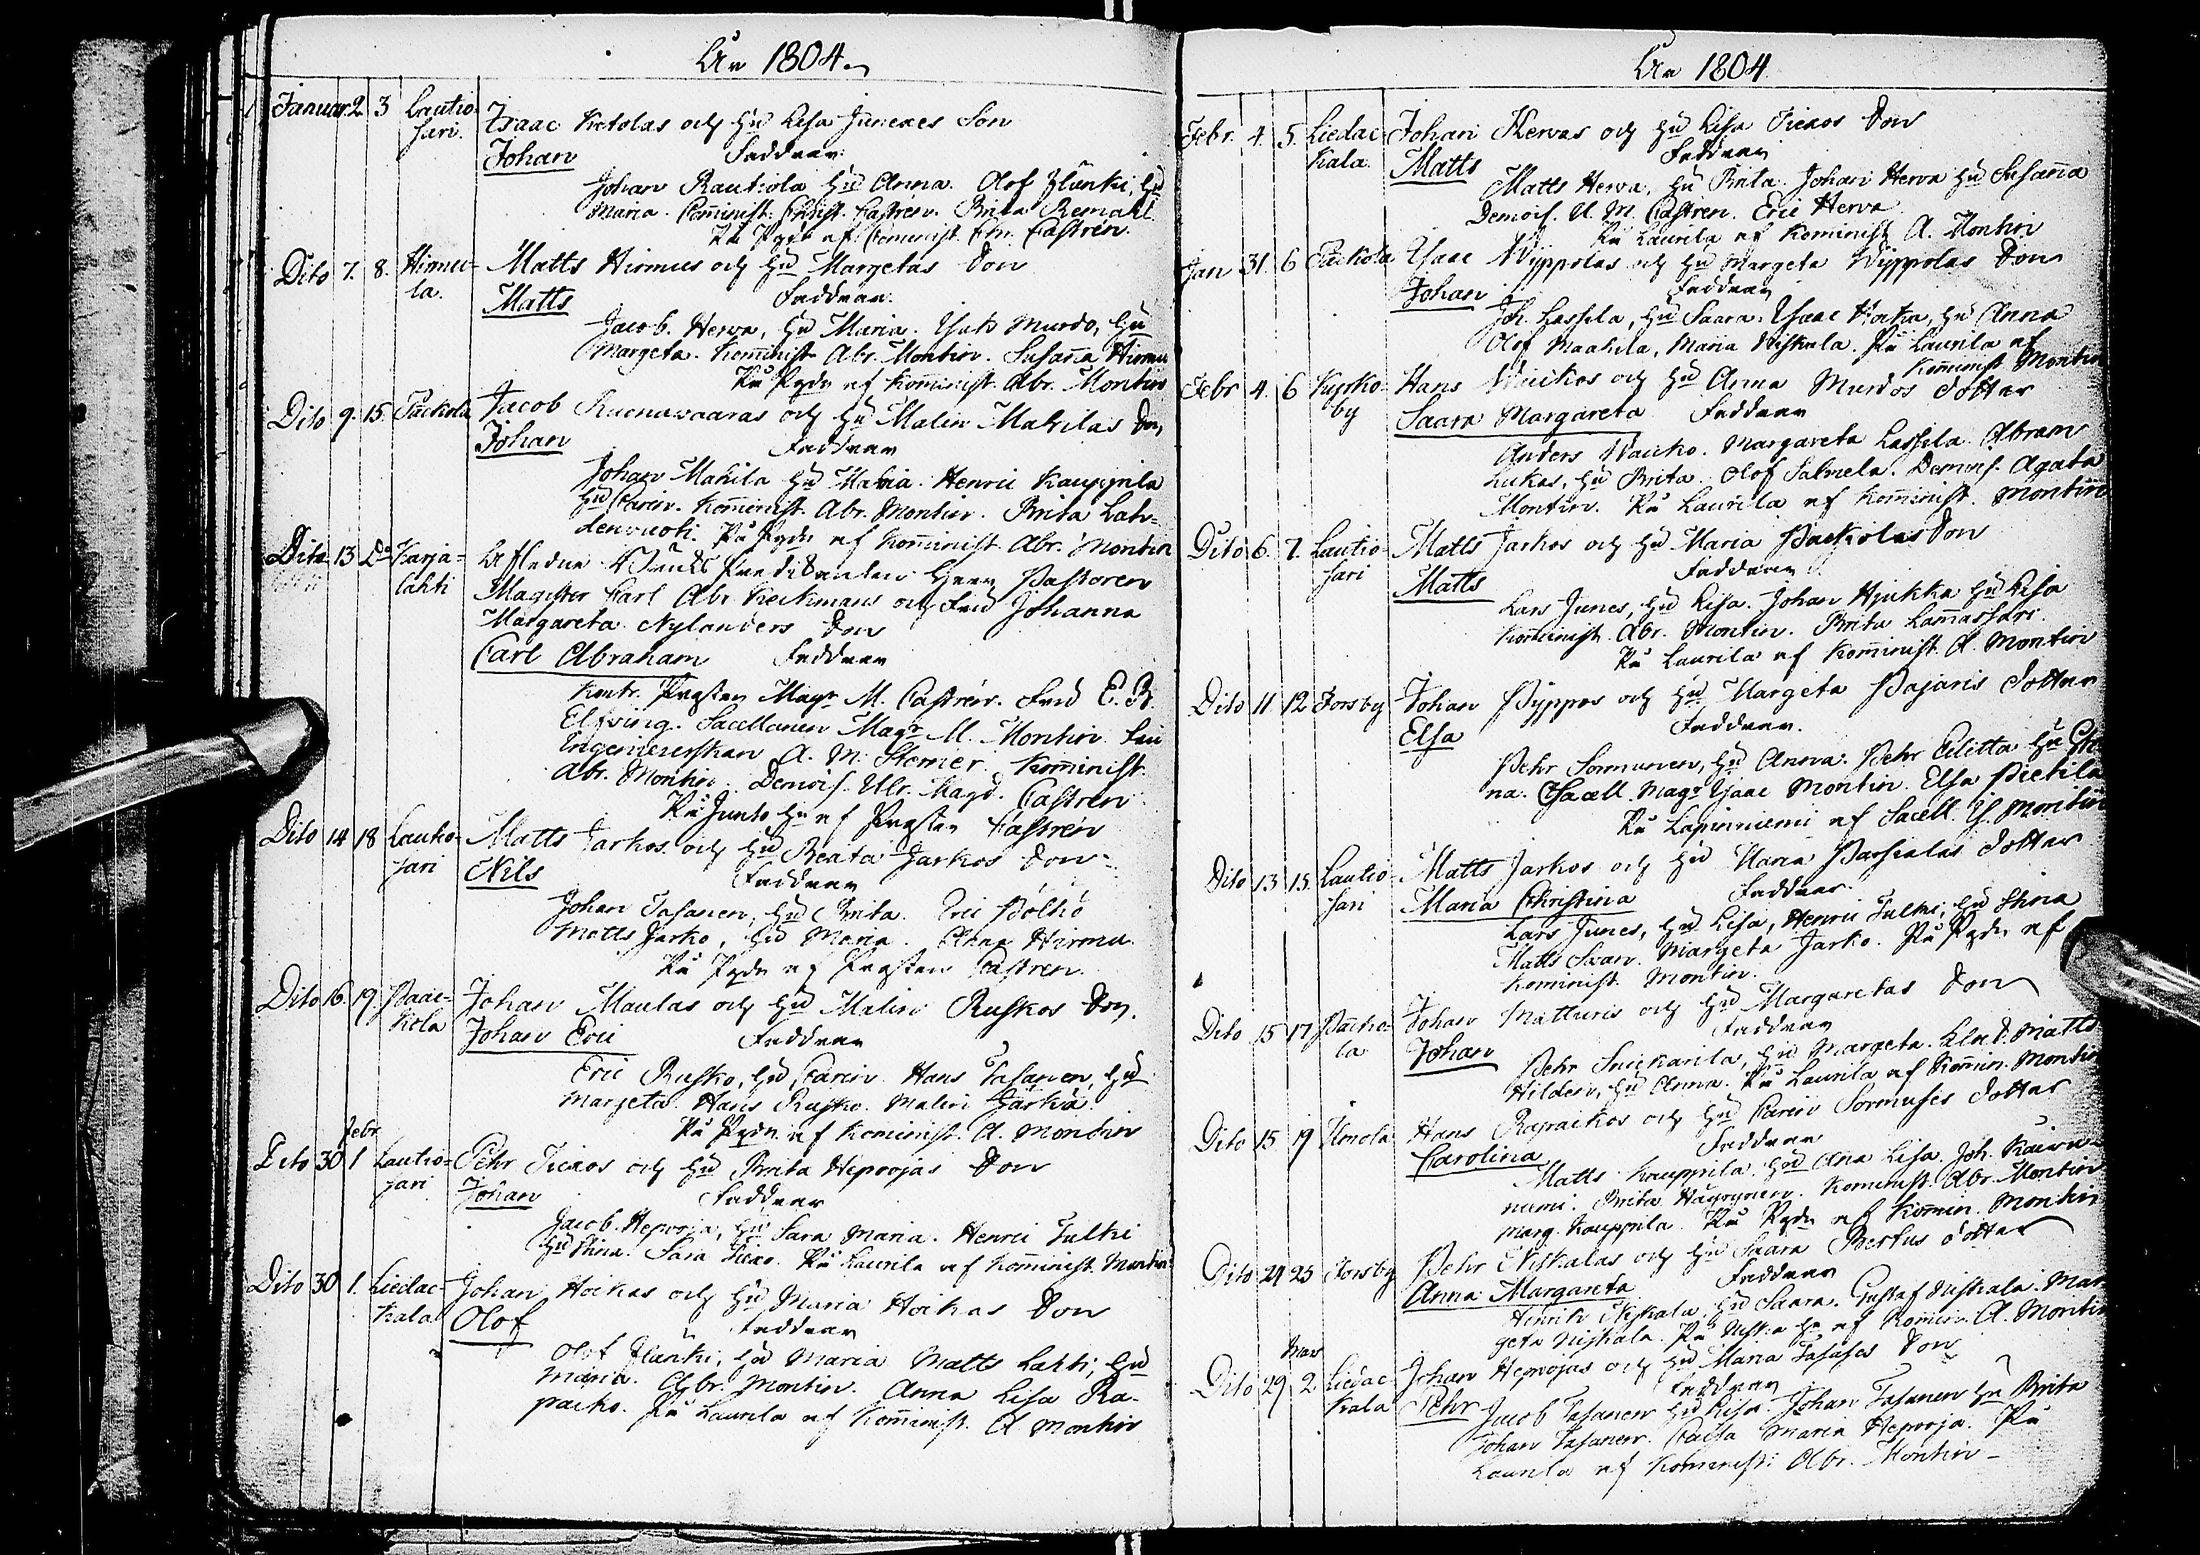 År 1804.
Januar. 2 3 Lautio- Isaac Ketolas och Hu Lisa Junexes Son
sari. Johan Faddrar:
Johan Rautiola Hu Anna. Olof Flunki, Hu
Maria. Cominist: Christ. Castrén. Brita Remahl
På Pgdn af Cominist. Chr. Castrén.
Dito 7. 8. Hirmu- Matts Hirmus och Hu Margetas Son
la. Matts Faddrar.
Jacob Herva, Hu Maria. Isak Murdo, Hu
Margeta. Kominist Abr. Montin. Susana Hirmu
På Pgdn af Kominist. Abr. Montin
Dito 9. 15. Paekola Jacob Ruonawaaras och Hu Malin Makilas Son
Johan Faddrar
Johan Makila Hu Maria. Henric Kauppila
Hu Carin. Kominist. Abr. Montin. Brita Lah-
denwuoti. På Pgdn af Kominist. Abr. Montin
Dito 13 Do Karja- Afledne Herr Pastoren
lahti Magister Carl Abr. Keckmans och Fru Johanna
Margareta Nylanders Son
Carl Abraham Faddrar
Kontr. Prosten Magr M. Castrén. Fru E. B.
Elfving. Sacellanen Magr M. Montin. Fru
Ingenieurskan A. M. Kominist.
Abr. Montin. Demois. Ulr. Magd. Castrén
På Junto Hn af Prosten Castrén
Dito 14 18 Lautio- Matts Jarkos och Hu Beata Jarkos Son
sari Nils Faddrar
Johan Tasanen, Hu Brita. Eric Pölhö
Matts Jarko, Hu Maria. Anna Hirmu.
På Pgdn af Prosten Castren.
Dito 16. 19. Paac- Johan Maulas och Hu Malin Ruskos Son.
kola Johan Eric Faddrar
Eric Rusko, Hu Carin. Hans Tasanen, Hu
Margeta. Hans Rusko. Malin Jarko.
På Pgdn af Kominist. A. Montin
Febr
Dito 30 1 Lautio- Pehr Ticxos och Hu Brita Hepoojas Son
sari Johan Faddrar
Jacob Hepooja, Hu Sara Maria. Henric Tulki
Hu Stina. Sara Ticxo. På Laurila af Kominist. Montin
Dito 30 1. Liedac- Johan Hoikas och Hu Maria Hoikas Son
kala Olof Faddrar
Olof Flunki, Hu Maria Matts Lahti, Hu
Maria. Abr. Montin. Anna Lisa Ra-
paiko. På Laurila af Kominist. A. Montin
År 1804
Febr. 4. 5. Liedac- Johan Hervas och Hu Lisa Ticxos Son
kala. Matts Faddrar
Matts Herva, Hu Brita. Johan Herva Hu Susana
Demois. U. M. Castren. Eric Herva
På Laurila af Kominist A. Montin
Jan 31. 6 Paekola Isaac Wyppolas och Hu Margeta Wyppolas Son
Johan Faddrar
Joh. Lassila, Hu Saara. Isaac Hoika, Hu Anna
Olof Maakila, Maria Niskala. På Laurila af
Kominist Montin
Febr 4. 6 Kyrko- Hans Waickos och Hu Anna Murdos dotter
by Saara Margareta Faddrar
Anders Waicko. Margareta Lassila. Abram
Lukas, Hu Brita. Olof Salmela. Demois. Agata
Montin. På Laurila af Kominist. Montin
Dito 6. 7. Lautio- Matts Jarkos och Hu Maria Paekolas Son
sari Matts Faddrar
Lars Junes, Hu Lisa. Johan Hjukka Hu Lisa
Kominist. Abr. Montin. Brita Lamassari.
På Laurila af Kominist. A. Montin
Dito 11 12 Forsby Johan Pyppos och Hu Margeta Pajaris dotter
Elsa Faddrar.
Pehr Sormunen, Hu Anna. Pehr Hu
na. Sacell. Magr Isaac Montin. Elsa Pietila
På Lapinniemi af Sacell. Is. Montin
Dito 13 15. Lautio- Matts Jarkos och Hu Maria dotter
sari Maria Christina Faddrar
Lars Junes, Hu Lisa, Henric Tulki, Hu Stina
Matts Svan. Margeta Jarko. På Pgdn af
Kominist Montin.
Dito 15 17 Paeko- Johan Matturis och Hu Margaretas Son
la Johan Faddrar
Pehr Snickarila, Hu Margeta. Matts
Hilden, Hu Anna. På Laurila af Komin. Montin
Dito 15 19 Ilmola Hans Rapaikos och Hu Carin Sormuses dotter
Carolina Faddrar
Matts Kauppila. Hu Ana Lisa. Joh. Kaira-
numi. Brita Häyrynen. Kominist. Abr. Montin
Marg. Kauppila. På Pgdn af Komin. Montin
Dito 24 25 Forsby Pehr Niskalas och Hu Saara Bertus dotter
Anna Margareta Faddrar
Hinrik Niskala, Hu Saara. Gustaf Niskala. Mar-
geta Niskala. På Niska Hn af Komin. A. Montin
Mars
Dito 29 2 Liedac- Johan Hepoojas och Hu Maria Tasases Son
kala Pehr Faddrar
Jacob Tasanen Hu Lisa. Johan Tasanen Hu Brita
Johan Tasanen. Caisa Maria Hepooja. På
Laurila af Kominist: Abr. Montin